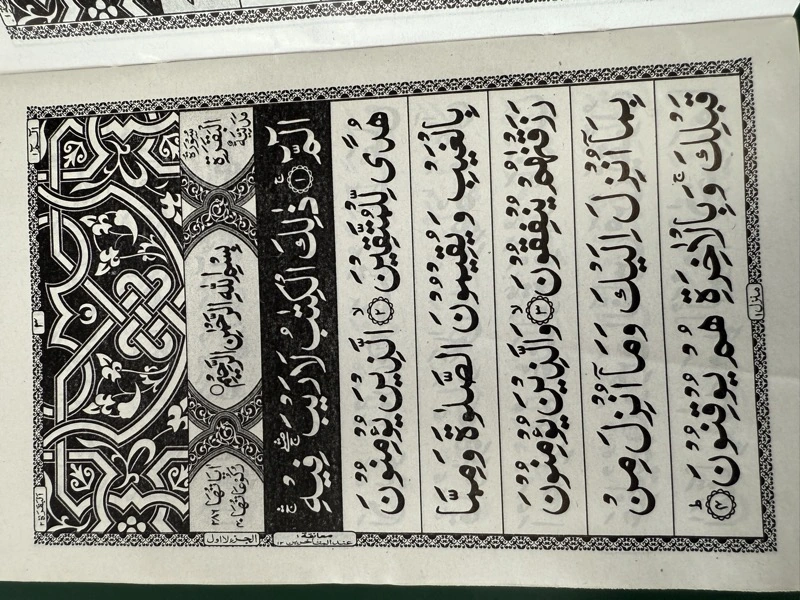 الٓمّٓ ١
٢
البقرة ٢
سُوْرَةُ الْبَقَرَةِ مَدَنِيَّةٌ
بِسْمِ اللهِ الرَّحْمٰنِ الرَّحِيْمِ
اٰيَاتُهَا
رُكُوْعَاتُهَا ٤٠
الٓمّٓ ۚ ﴿١﴾ ذٰلِكَ الْكِتٰبُ لَا رَيْبَ ۛۚ فِيْهِ ۛۚ
هُدًى لِّلْمُتَّقِيْنَ ۙ ﴿٢﴾ الَّذِيْنَ يُؤْمِنُوْنَ
بِالْغَيْبِ وَيُقِيْمُوْنَ الصَّلٰوةَ وَمِمَّا
رَزَقْنٰهُمْ يُنْفِقُوْنَ ۙ ﴿٣﴾ وَالَّذِيْنَ يُؤْمِنُوْنَ
بِمَآ اُنْزِلَ اِلَيْكَ وَمَآ اُنْزِلَ مِنْ
قَبْلِكَ ۚ وَبِالْاٰخِرَةِ هُمْ يُوْقِنُوْنَ ؕ ﴿٤﴾
الجزء الاول
معانقة ١
منزل ١